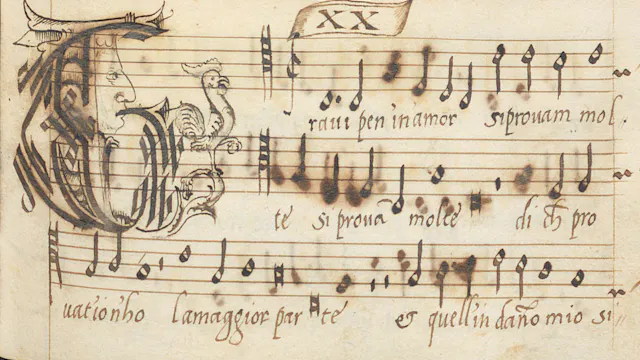 XX
raui pen' in amor si prouam mol.
te si prouā molte di ch pro
uat'ion'ho la maggior par te & quell' in dan̄o mio si